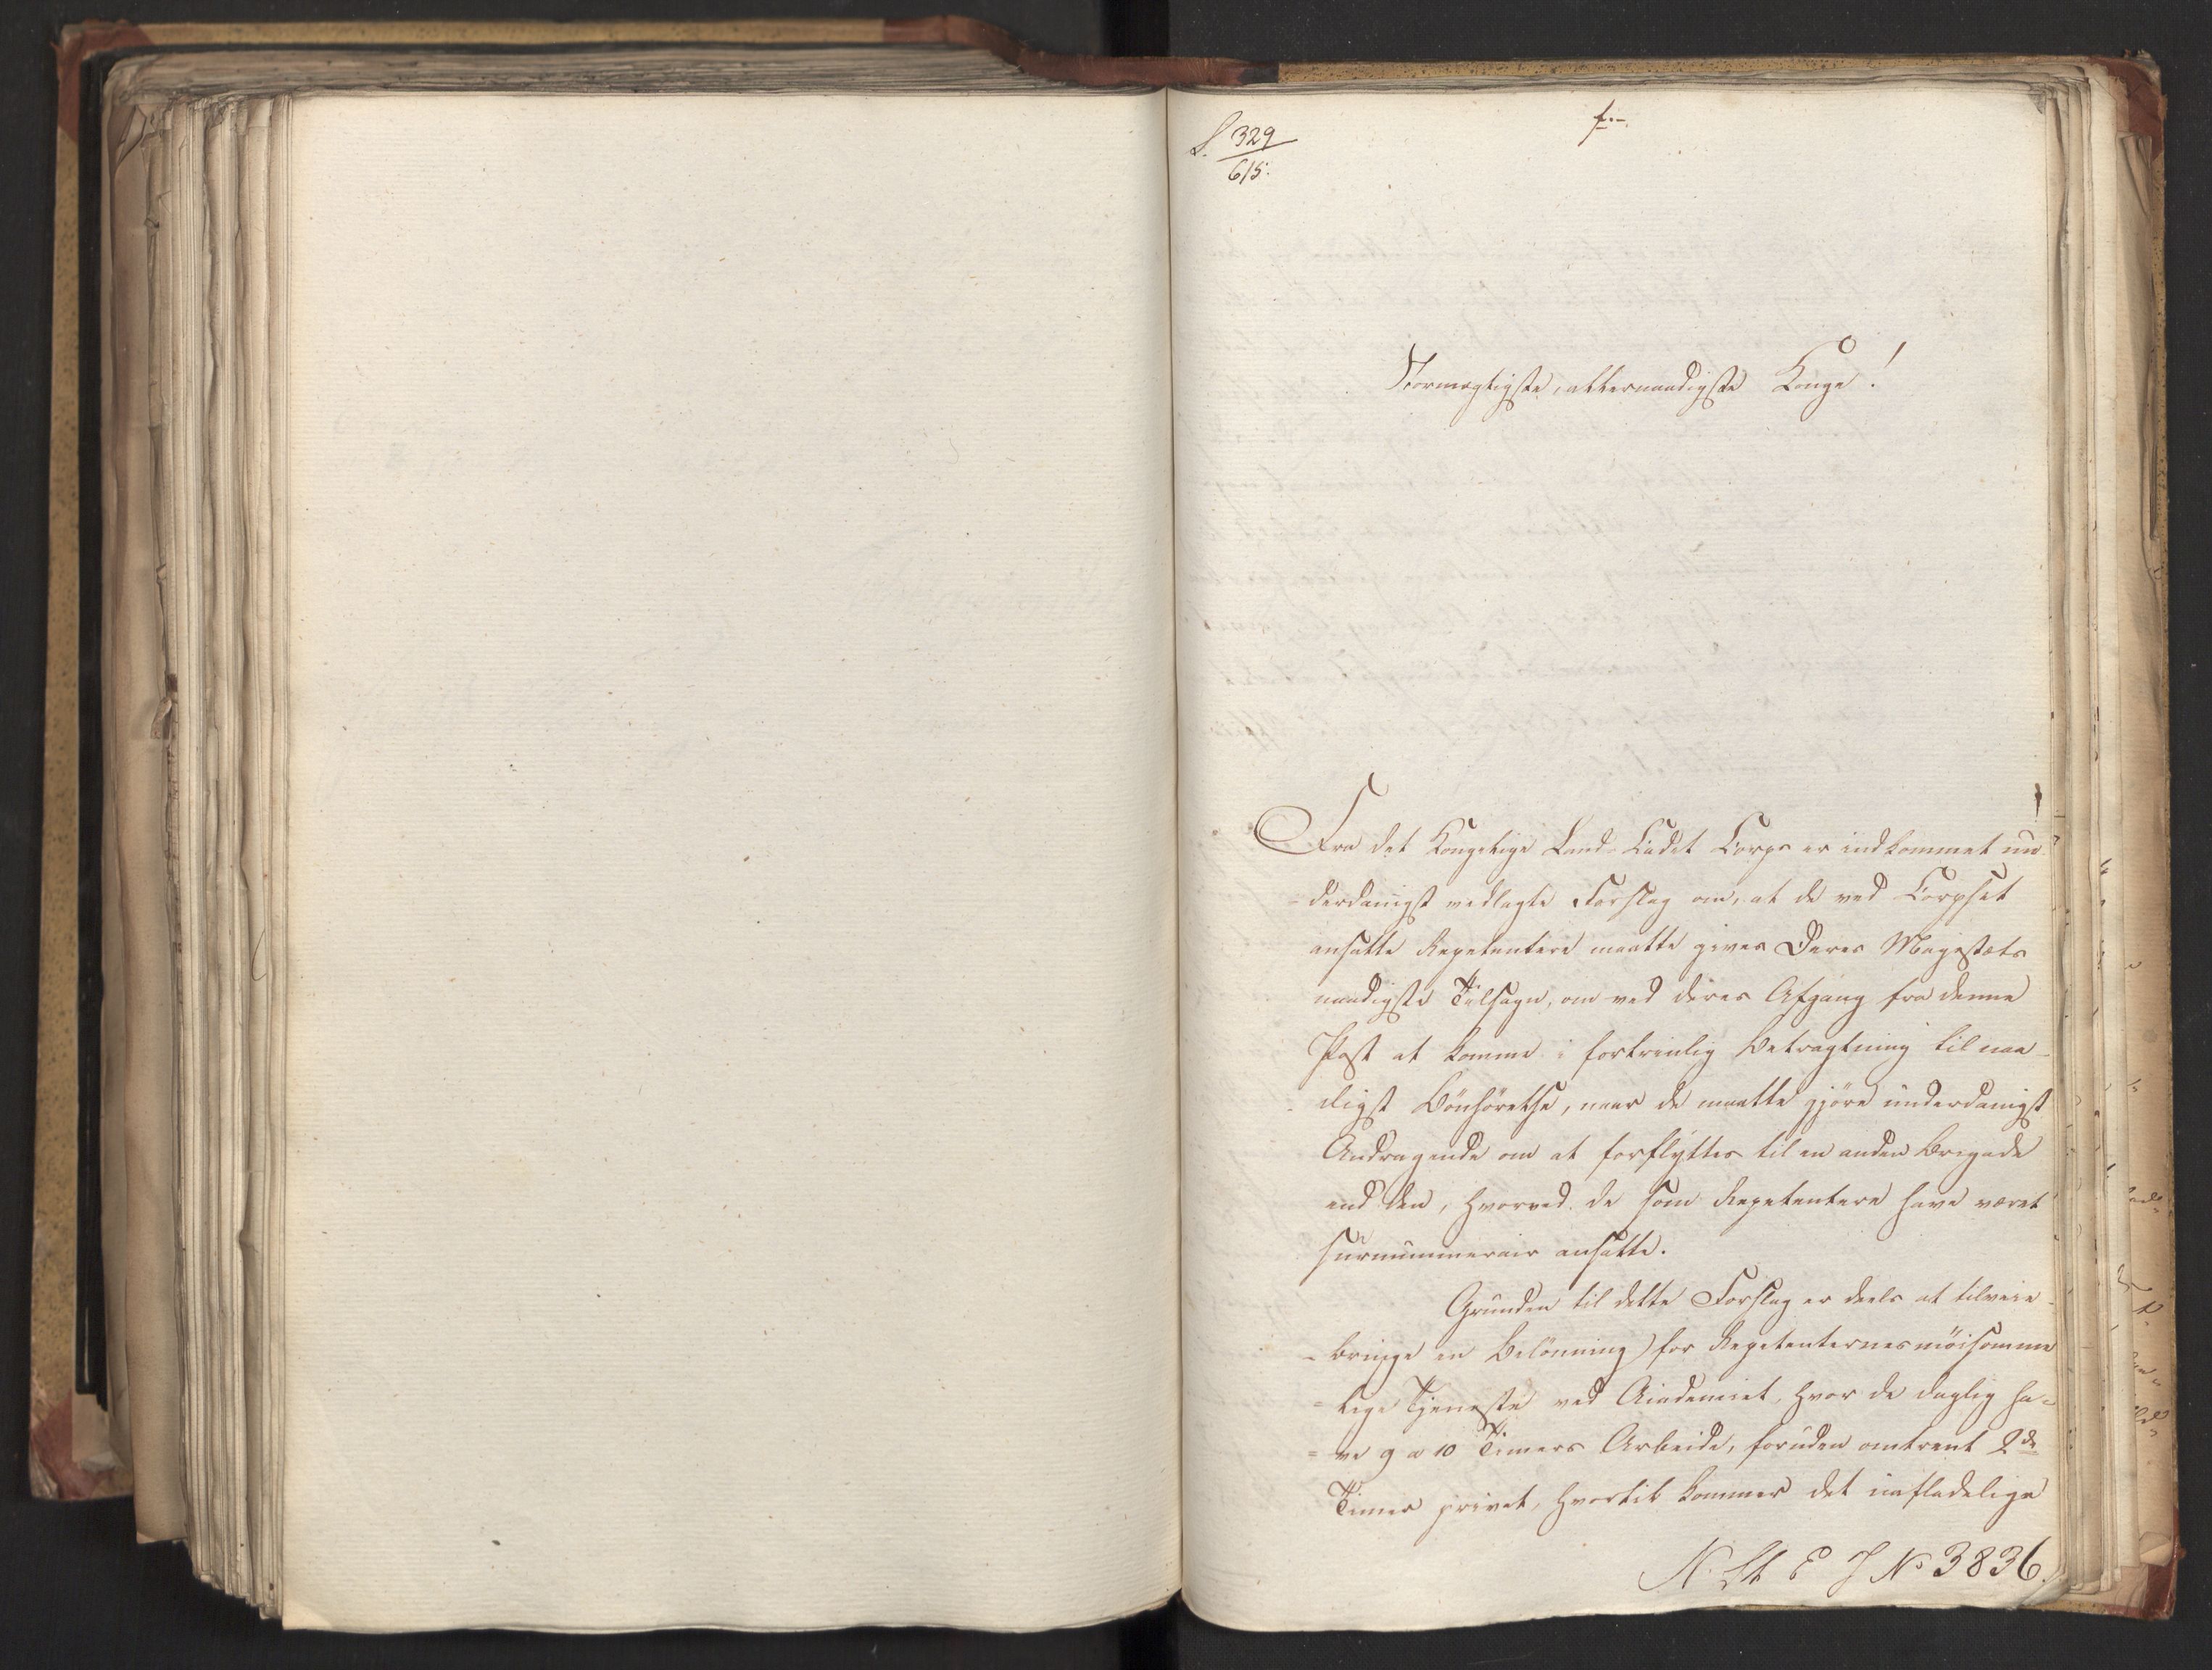 f.-
S. 329
615.
Stormægtigste, allernaadigste Konge!
Fra det Kongelige Land-Cadet Corps er indkommet un
-derdanigst vedlagte Forslag om, at de ved Corpset
ansatte Repetentere maatte gives Deres Majestæts
naadigste Tilsagn, om ved deres Afgang fra denne
Post at komme i fortrinlig Betragtning til naa-
digst Bönhörelse, naar de maatte gjöre underdanigst
Andragende om at forflyttes til en anden Brigade
end den, hvorved de som Repetentere have været
surnummerair ansatte.
Grunden til dette Forslag er deels at tilveie-
-bringe en Belönning for Repetenternes möisomme
-lige Tjeneste ved Academiet, hvor de daglig ha-
=ve 9 a 10 Timers Arbeide, foruden omtrent 2de
Timer privat, hvortil kommer det uafladelige
N. St E J No 3836.